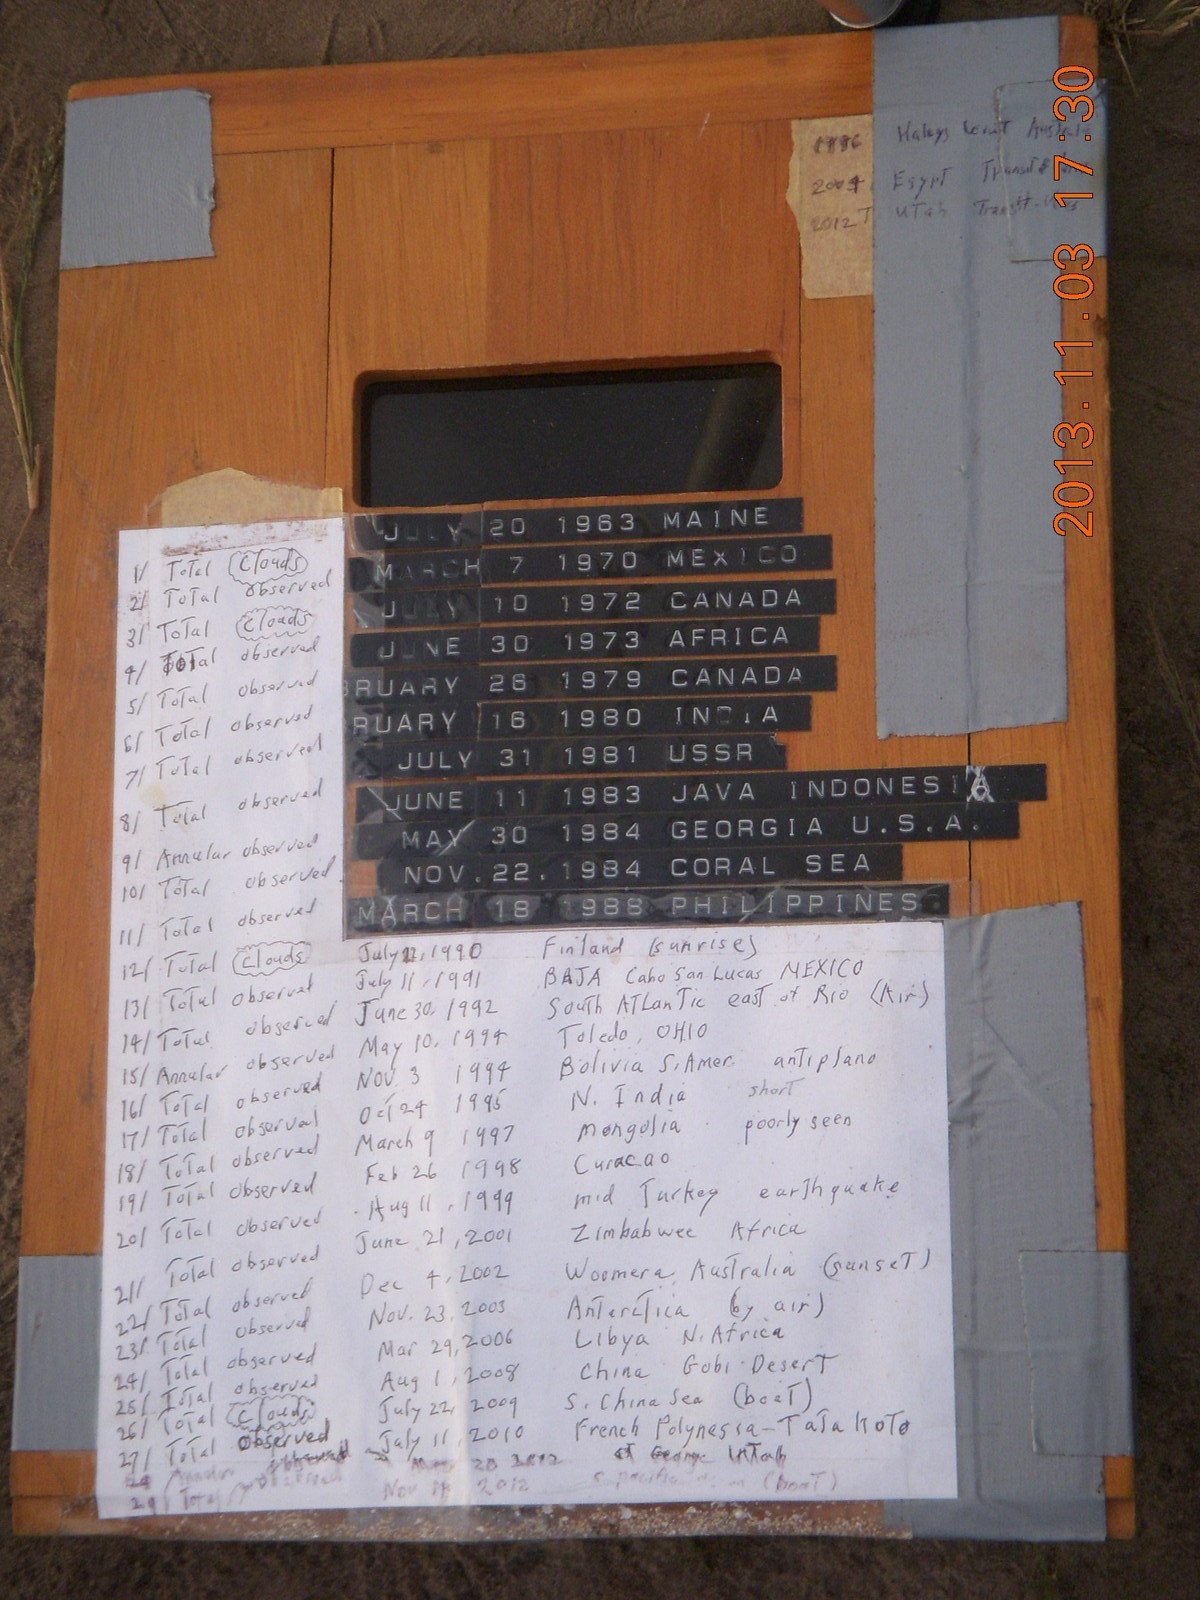 2013.11.03 17:30
1986 Haleys Comet Australia
2004 Egypt Transit
2012 Utah Transit-
JULY 20 1963 MAINE
MARCH 7 1970 MEXICO
JULY 10 1972 CANADA
JUNE 30 1973 AFRICA
BRUARY 26 1979 CANADA
RUARY 16 1980 INDIA
JULY 31 1981 USSR
JUNE 11 1983 JAVA INDONESIA
MAY 30 1984 GEORGIA U.S.A.
NOV.22.1984 CORAL SEA
MARCH 18 1988 PHILIPPINES
1/ Total Clouds
2/ Total observed
3/ Total Clouds
4/ Total observed
5/ Total observed
6/ Total observed
7/ Total observed
8/ Total observed
9/ Annular observed
10/ Total observed
11/ Total observed
12/ Total Clouds July 22, 1990 Finland (sunrise)
13/ Total observed July 11, 1991 BAJA Cabo San Lucas MEXICO
14/ Total observed June 30, 1992 South Atlantic east of Rio (Air)
15/ Annular observed May 10, 1994 Toledo, OHIO
16/ Total observed Nov. 3 1994 Bolivia S. Amer. antiplano
17/ Total observed Oct 24 1995 N. India short
18/ Total observed March 9 1997 Mongolia poorly seen
19/ Total observed Feb 26 1998 Curacao
20/ Total observed Aug 11, 1999 mid Turkey earthquake
21/ Total observed June 21, 2001 Zimbabwee Africa
22/ Total observed Dec 4, 2002 Woomera, Australia (sunset)
23/ Total observed Nov. 23, 2003 Antarctica (by air)
24/ Total observed Mar 29, 2006 Libya N. Africa
25/ Total observed Aug 1, 2008 China Gobi Desert
26/ Total Clouds July 22, 2009 S. China Sea (boat)
27/ Total observed July 11, 2010 French Polynesia - Tata Koto
28 Annular observed 20 2012 St George Utah
29/ Total observed Nov 2012 (boat)